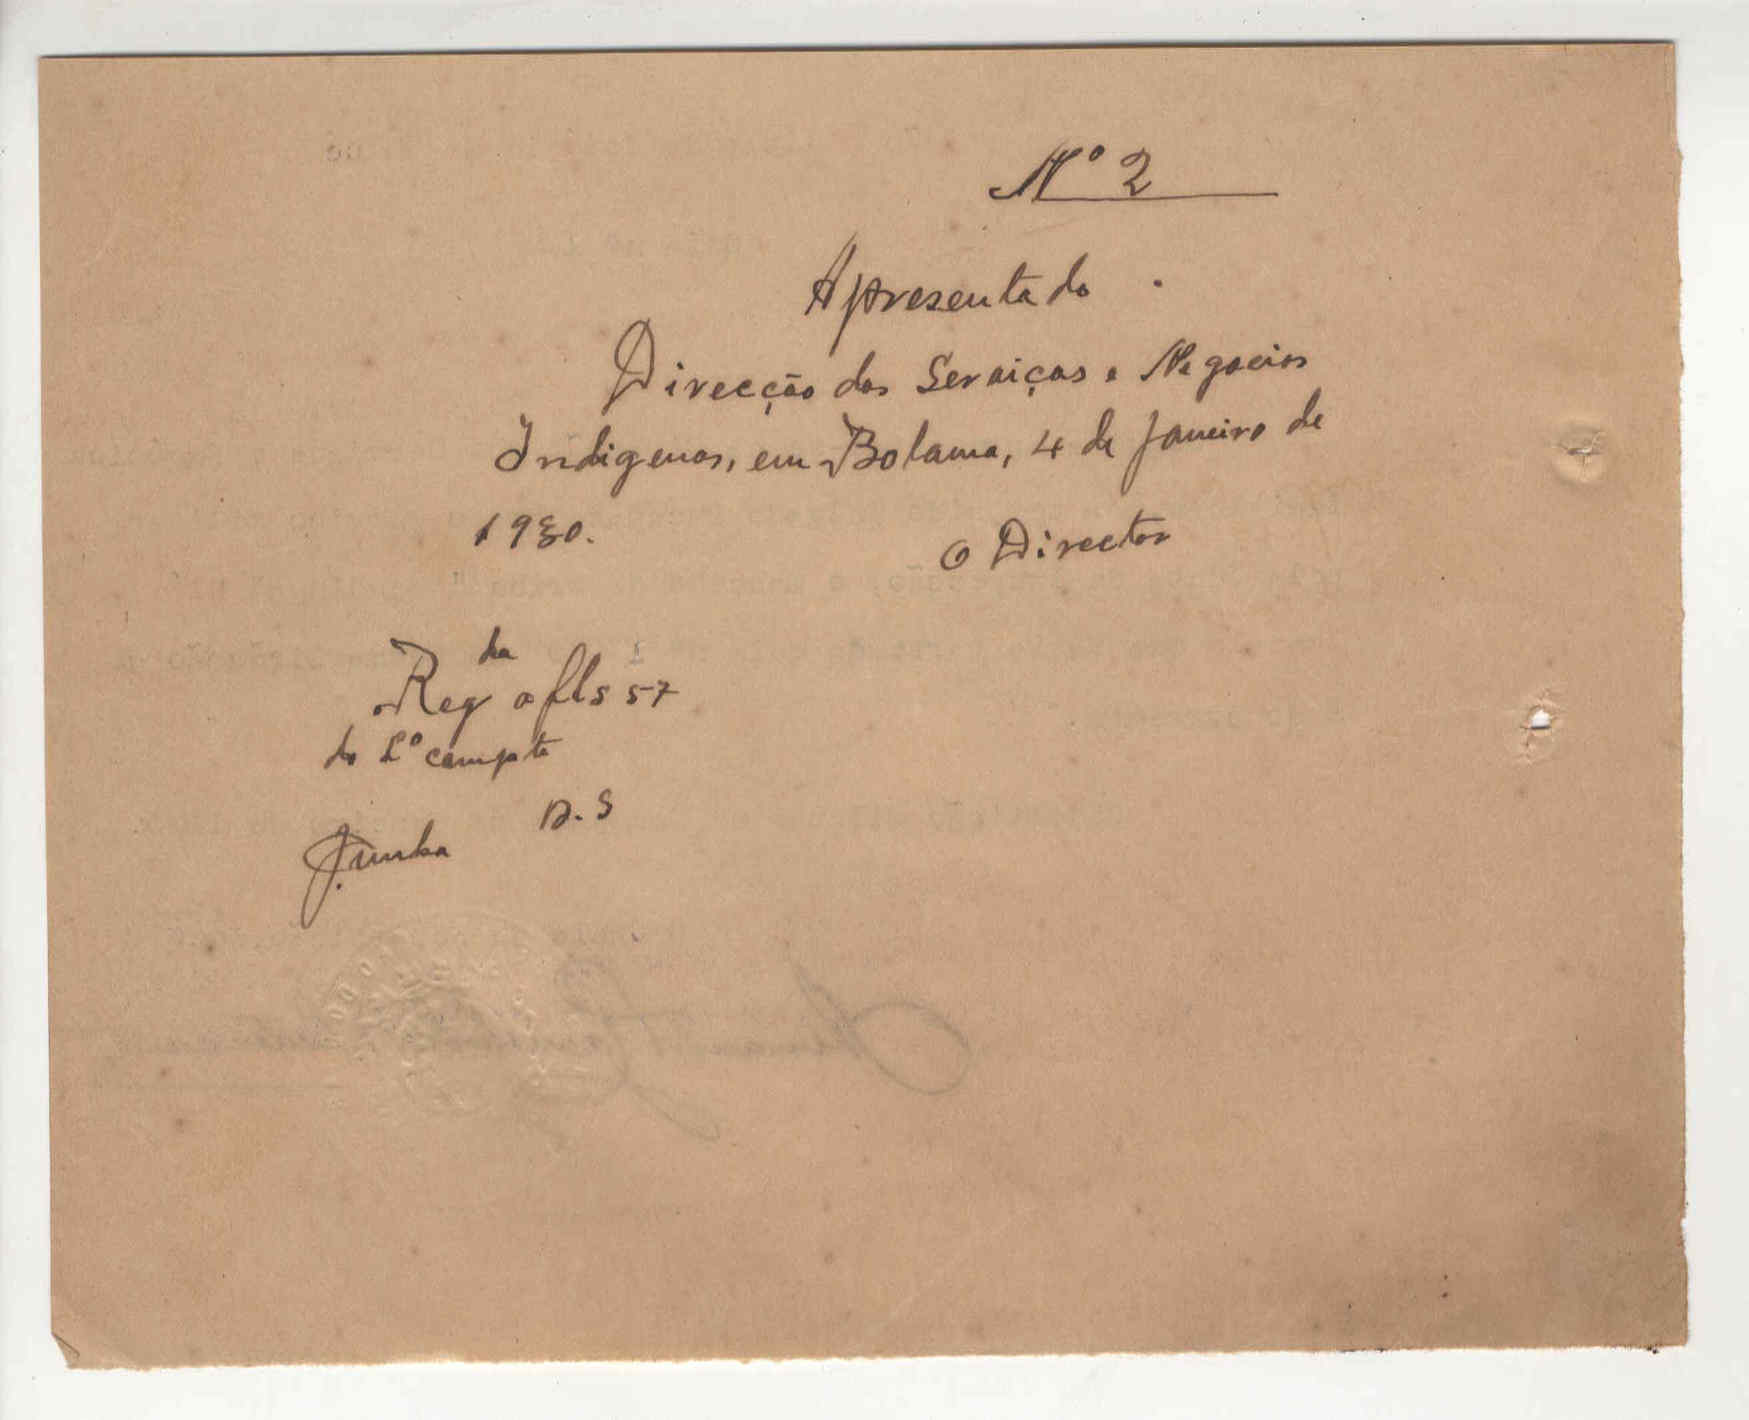 Nº 2
Apresentado
Direcção dos Serviços e Negocios
Indigenas, em Bolama, 4 de Janeiro de
1930.
O Director
Reg da a fls 57
do Lº compte
D. S